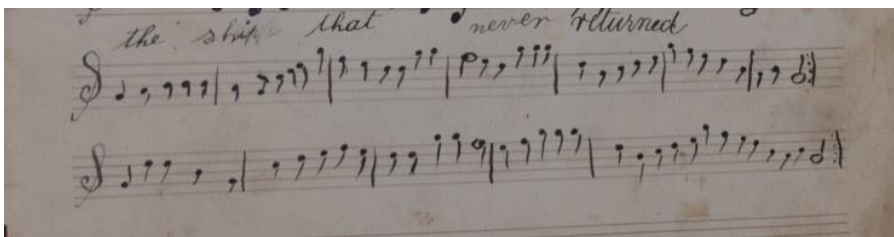 the ship that never returned